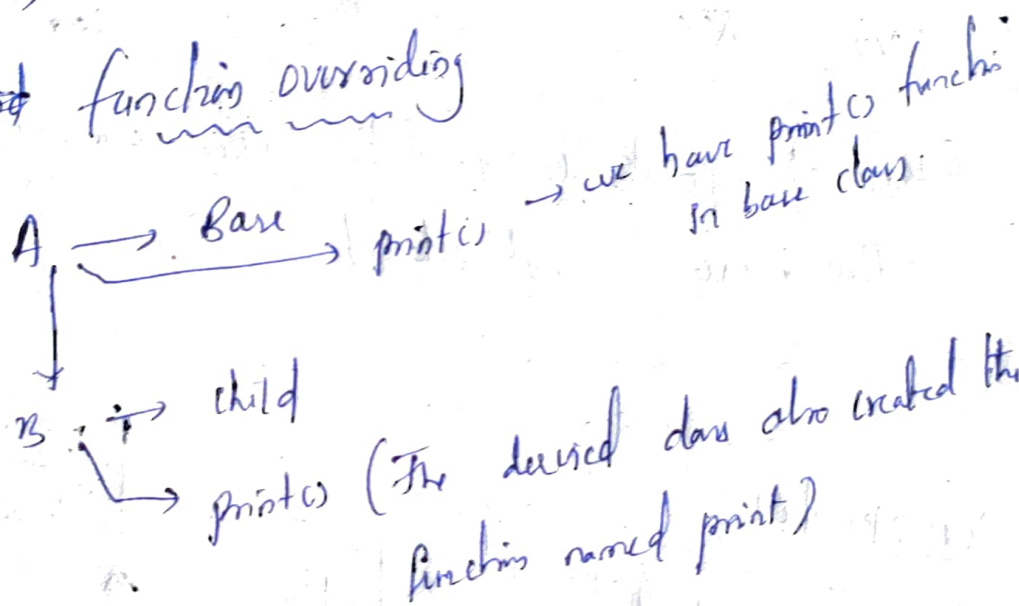 function overriding
A → Base → print() → we have print() function
in base class.
B → child
→ print() (The derived class also created the
function named print)